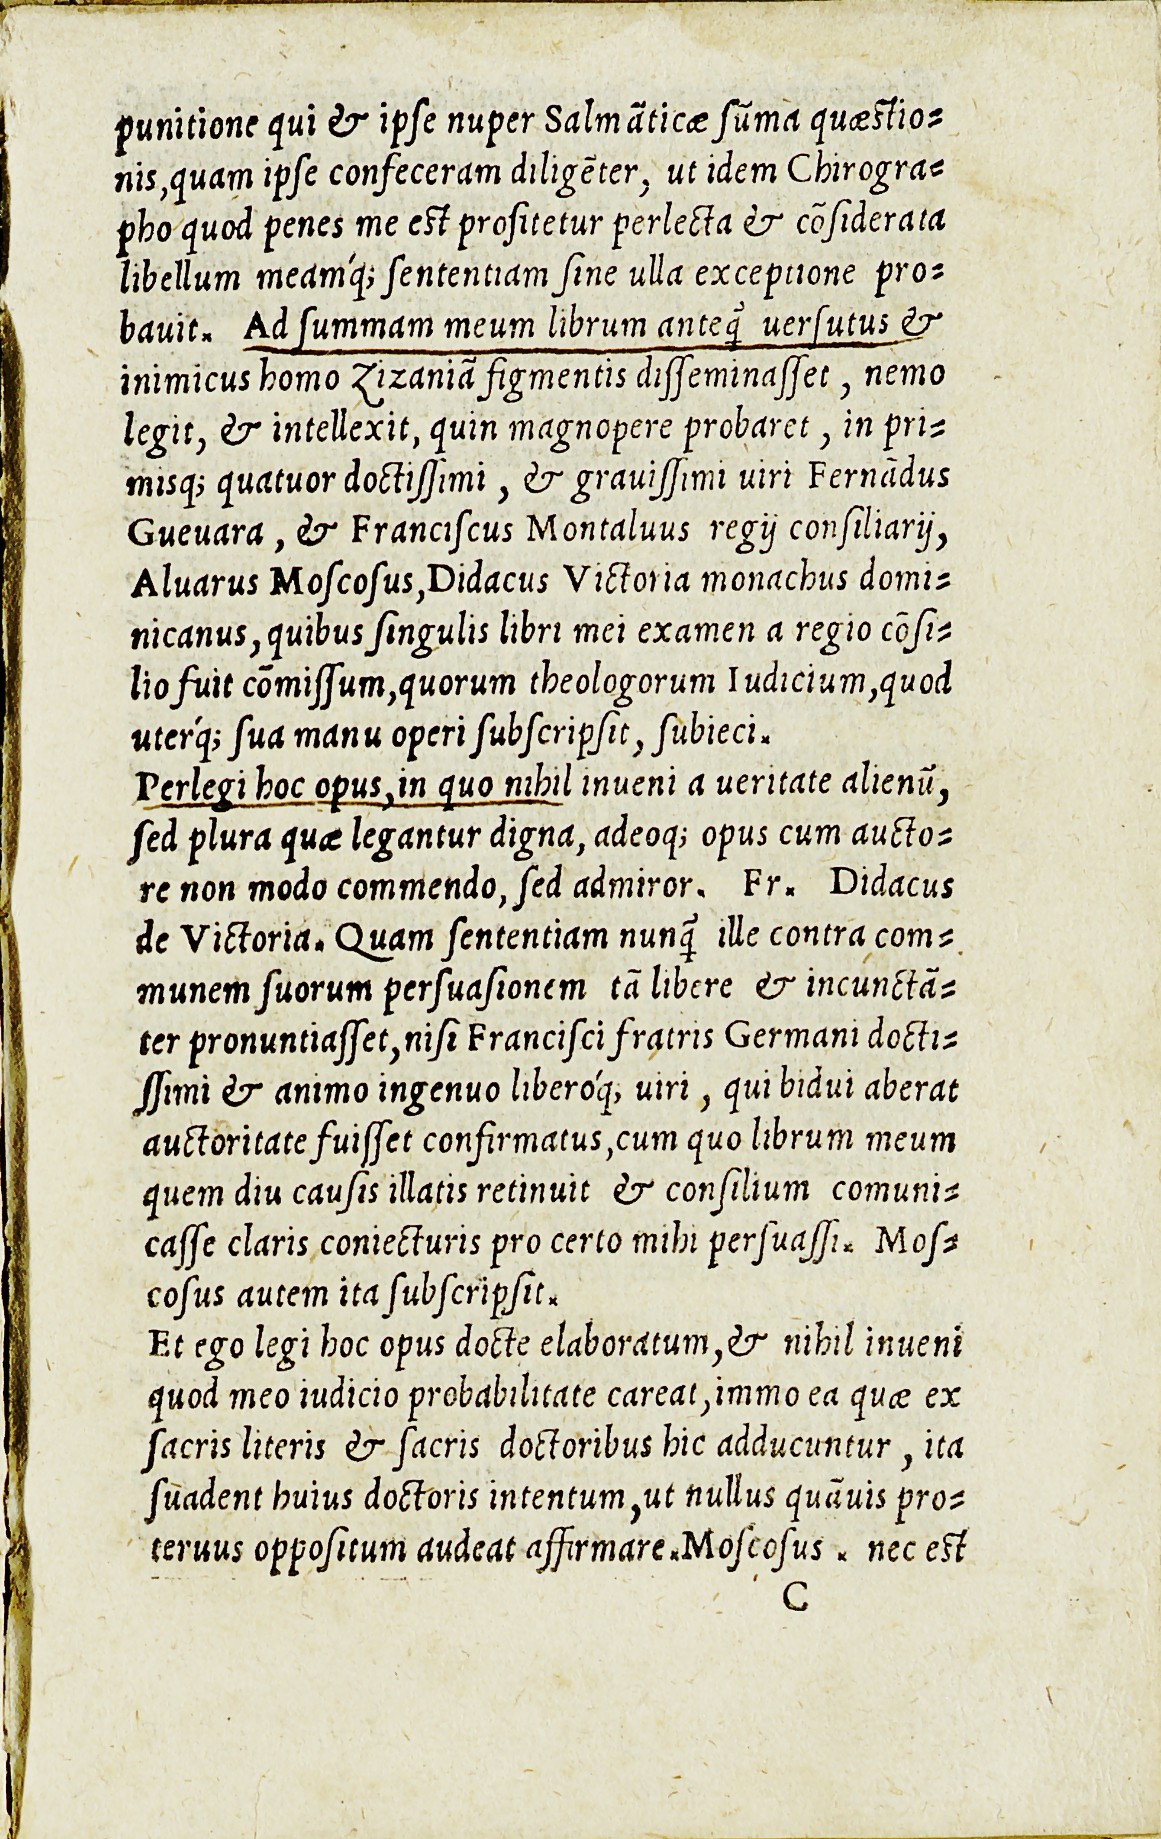 punitione qui & ipſe nuper Salmãticæ ſũma quæſtio=
nis,quam ipſe confeceram diligẽter, ut idem Chirogra=
pho quod penes me eſt profitetur perlecta & cõſiderata
libellum meamq́; ſententiam ſine ulla exceptione pro=
bauit. Ad ſummam meum librum anteq̃ uerſutus &
inimicus homo Zizaniã figmentis diſſeminaſſet , nemo
legit, & intellexit, quin magnopere probaret , in pri=
misq; quatuor doctiſſimi , & grauiſſimi uiri Fernãdus
Gueuara , & Franciſcus Montaluus regij conſiliarij,
Aluarus Moſcoſus,Didacus Victoria monachus domi=
nicanus,quibus ſingulis libri mei examen a regio cõſi=
lio fuit cõmiſſum,quorum theologorum Iudicium,quod
uterq́; ſua manu operi ſubſcripſit, ſubieci.
Perlegi hoc opus,in quo nihil inueni a ueritate alienũ,
ſed plura quæ legantur digna, adeoq; opus cum aucto=
re non modo commendo, ſed admiror. Fr. Didacus
de Victoria. Quam ſententiam nunq̃ ille contra com=
munem ſuorum perſuaſionem tã libere & incunctã=
ter pronuntiaſſet,niſi Franciſci fratris Germani docti=
ſſimi & animo ingenuo liberoq́; uiri , qui bidui aberat
auctoritate fuiſſet confirmatus,cum quo librum meum
quem diu cauſis illatis retinuit & conſilium comuni=
caſſe claris coniecturis pro certo mihi perſuaſſi. Moſ=
coſus autem ita ſubſcripſit.
Et ego legi hoc opus docte elaboratum,& nihil inueni
quod meo iudicio probabilitate careat,immo ea quæ ex
ſacris literis & ſacris doctoribus hic adducuntur , ita
ſuadent huius doctoris intentum,ut nullus quãuis pro=
teruus oppoſitum audeat affirmare.Moſcoſus . nec eſt
C